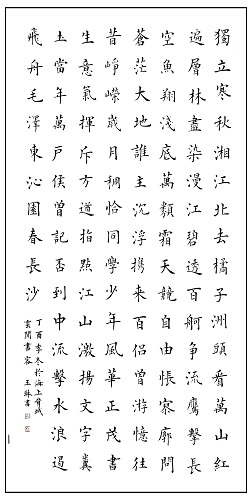 獨立寒秋湘江北去橘子洲頭看萬山紅
遍層林盡染漫江碧透百舸爭流鷹擊長
空魚翔淺底萬類霜天競自由悵寥廓問
蒼茫大地誰主沉浮携來百侶曾游憶往
昔崢嶸歲月稠恰同學少年風華正茂書
生意氣揮斥方遒指點江山激揚文字糞
土當年萬戶侯曾記否到中流擊水浪遏
飛舟毛澤東沁園春長沙
丁酉季冬於海上
雲間書客王琳書